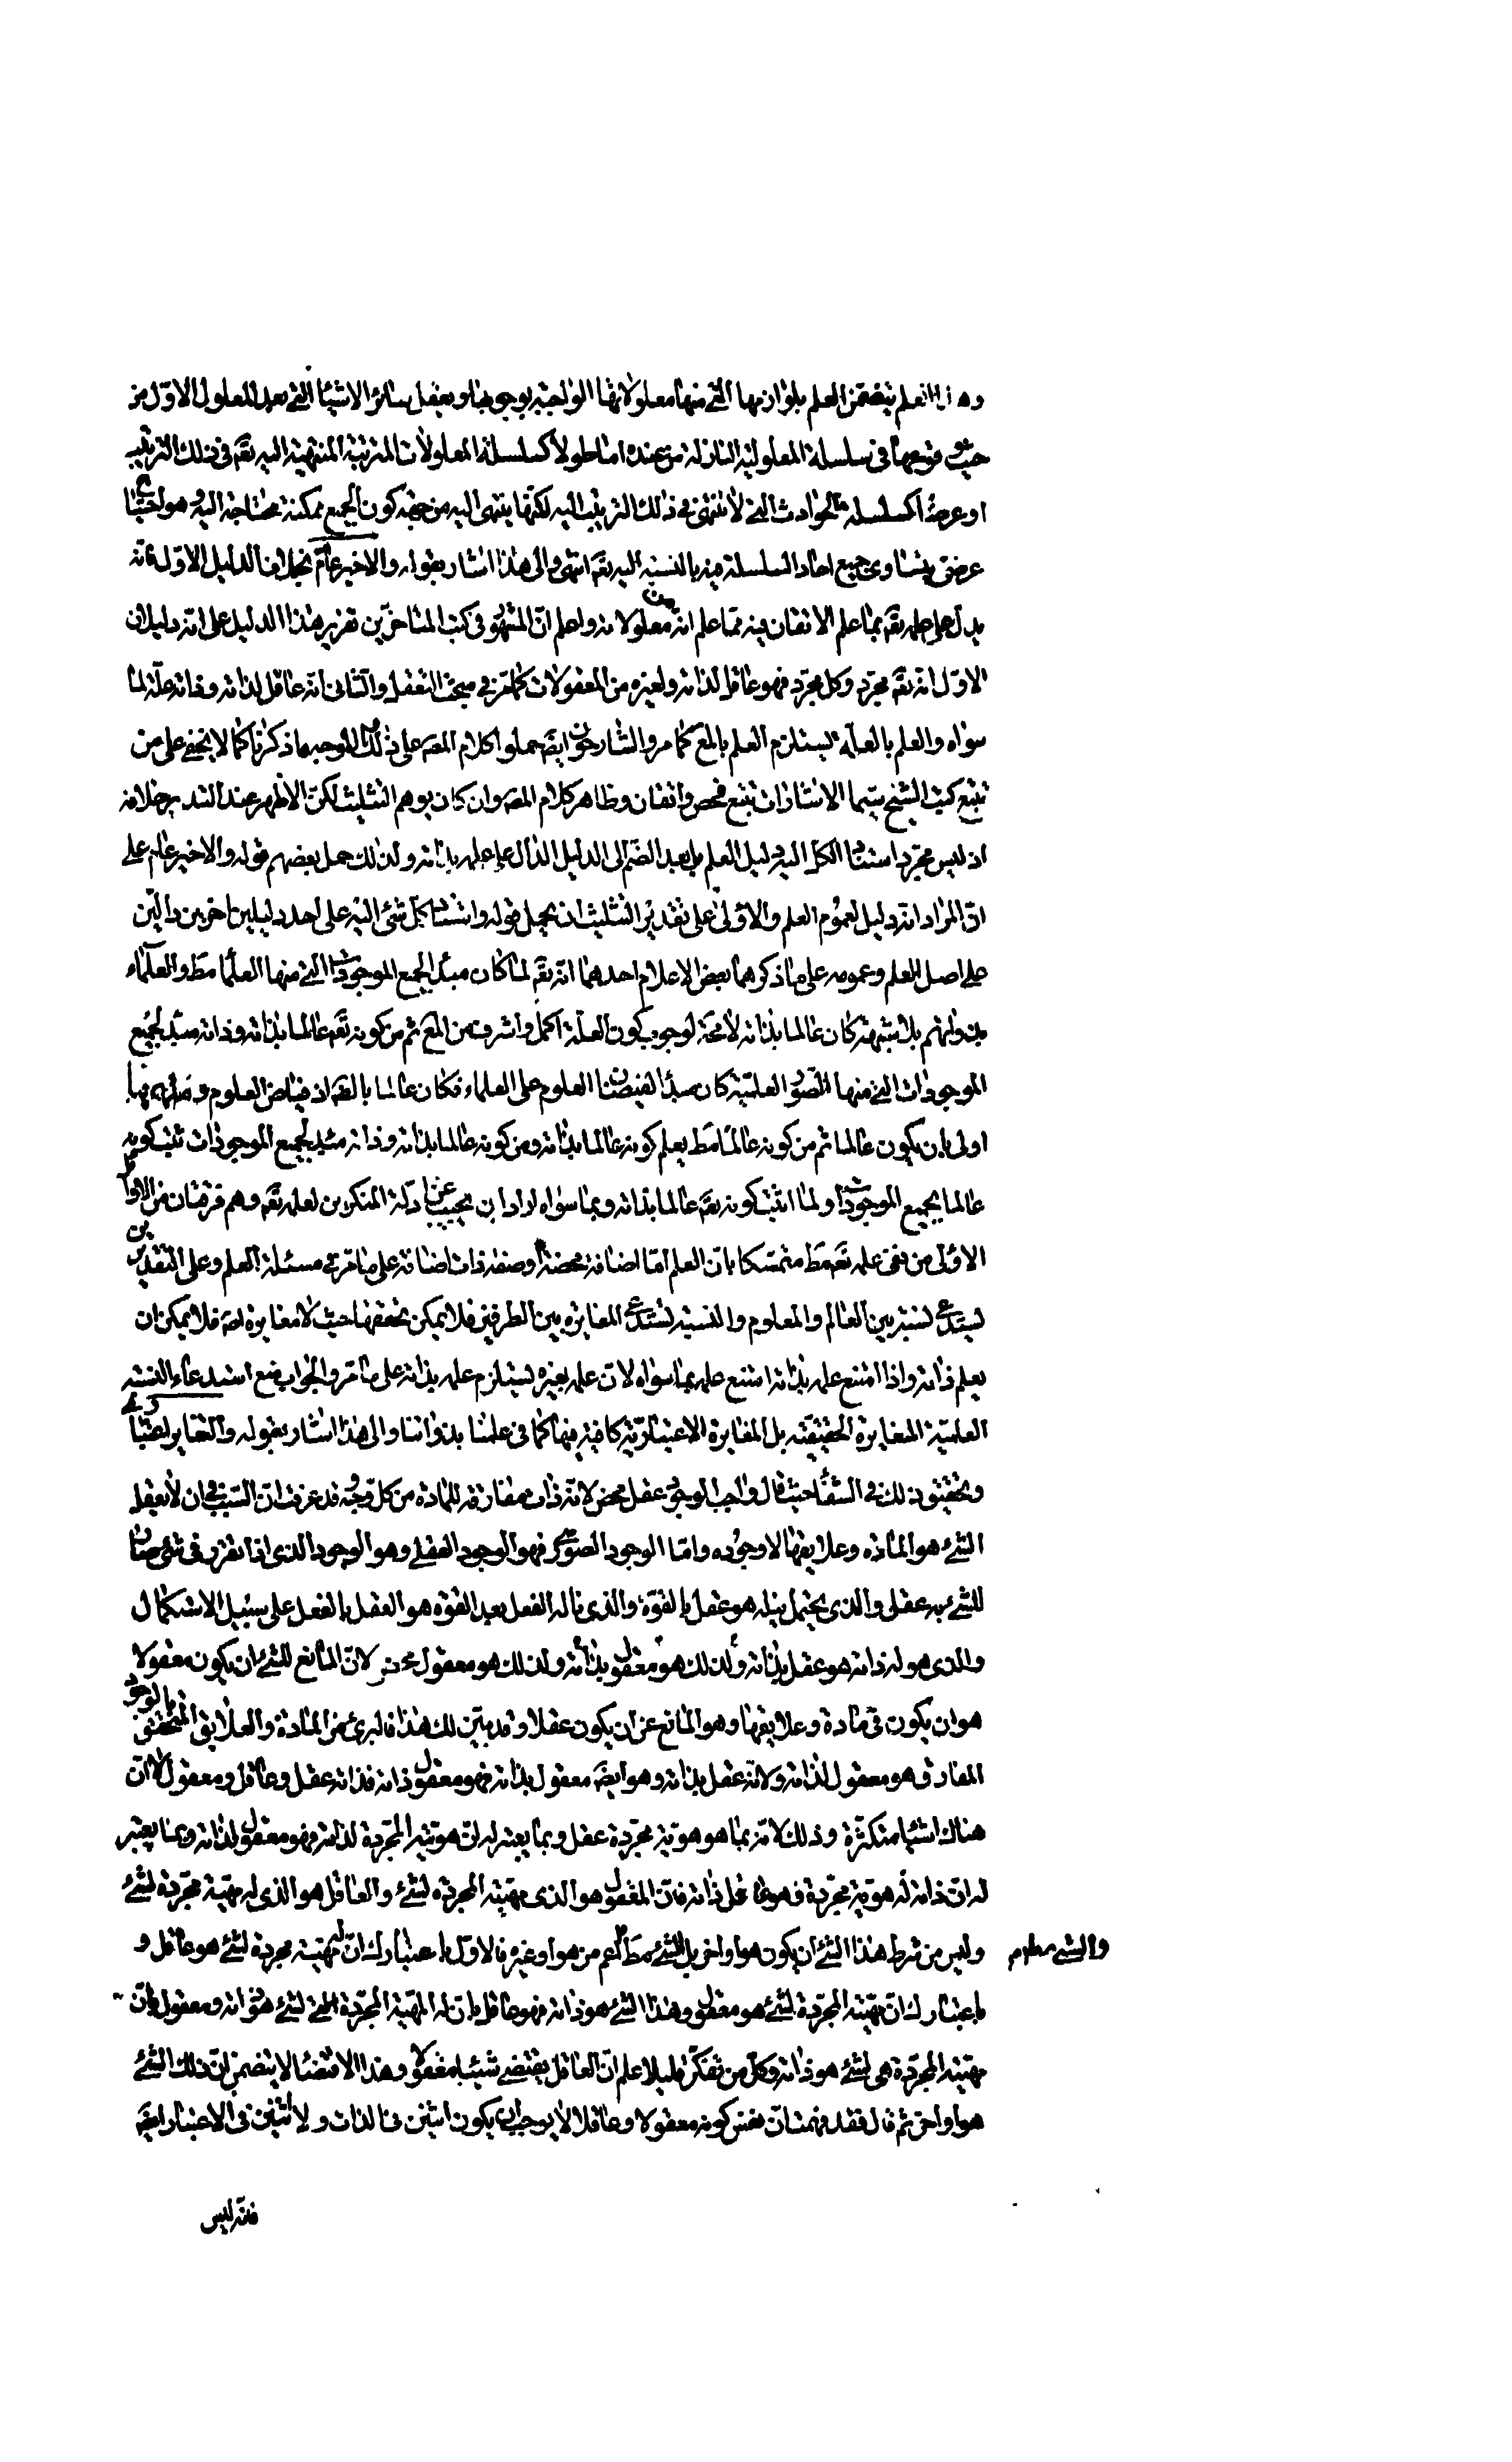 وهذا العلم يتضمن العلم بلوازمها التي منها معلولاتها الواجبة بوجوبها ويعقل سائر الاشياء التي بعد المعلول الاول من
حيث وقوعها في سلسلة المعلولية النازلة من عنده اما طولا كسلسلة المعلولات المترتبة المنتهية اليه تعم في ذلك الترتيب
او عرضا كسلسلة الحوادث التي لا تنتهي في ذلك الترتيب اليه لكنها ينتهي اليه من جهة كون الجميع ممكنة محتاجة اليه وهو احتياج
عرضي يتساوى جميع احاد السلسلة فيه بالنسبة اليه تعم انتهى والى هذا اشار بقوله والاخير عام بخلاف الدليل الاول فانه
يدل على علمه تعم بما علم الاتقان فيه مما علم انه من معلولاته واعلم ان المشهور في كتب المتاخرين تقرير هذا الدليل على انه دليلان
الاول انه تعم مجرد وكل مجرد فهو عاقل لذاته ولغيره من المعقولات كما مر في مبحث التعقل والثاني انه عاقل لذاته وذاته علة لما
سواه والعلم بالعلة يستلزم العلم بالمع كما مر والشارحون ايضه حملوا كلام المصه على ذلك والوجه ما ذكرنا كما لا يخفى على من
تتبع كتب الشيخ سيما الاشارات تتبع فحص واتقان وظاهر كلام المصه وان كان يوهم التثليث لكن الاظهر عند التدبر خلافه
اذ ليس مجرد استناد الكل اليه دليل العلم بل بعد الضم الى الدليل الدال على علمه بذاته ولذلك حمل بعضهم قوله والاخير عام على
ان المراد انه دليل لعموم العلم والاولى على تقدير التثليث ان يحمل قوله واستناد كل شئ اليه على احد دليلين اخرين دالين
على اصل العلم وعمومه على ما ذكرهما بعض الاعلام احدهما انه تعم لما كان مبدأ لجميع الموجودات التي منها العلماء مط والعلماء
بذواتهم بلا شبهة كان عالما بذاته لا محة لوجوب كون العلة اكمل واشرف من المع ثم من كونه تعم عالما بذاته وذاته مبدأ لجميع
الموجودات التي منها الصور العلمية كان مبدأ لفيضان العلوم على العلماء فكان عالما بالضه اذ فياض العلوم وملهمها
اولى بان يكون عالما ثم من كونه عالما مط يعلم كونه عالما بذاته ومن كونه عالما بذاته وذاته مبدأ لجميع الموجودات ثبت كونه
عالما بجميع الموجودات ولما اثبت كونه تعم عالما بذاته وبما سواه اراد ان يجيب عن ادلة المنكرين لعلمه تعم وهم فرقتان من الاوائل
الاولى من نفى علمه تعم مط متمسكا بان العلم اما اضافة محضة او صفة ذات اضافة على ما مر في مسئلة العلم وعلى التقديرين
يستدعي نسبة بين العالم والمعلوم والنسبة تستدعي المغايرة بين الطرفين فلا يمكن تحققها حيث لا مغايرة اصه فلا يمكن ان
يعلم ذاته واذا امتنع علمه بذاته امتنع علمه بما سواه لان علمه بغيره يستلزم علمه بذاته على ما مر والجواب منع استدعاء النسبة
العلمية المغايرة الحقيقية بل المغايرة الاعتبارية كافية فيها كما في علمنا بذواتنا والى هذا اشار بقوله والتغاير اعتباري
وتحقيق ذلك في الشفا حيث قال واجب الوجود عقل محض لانه ذات مفارقة للمادة من كل وجه وقد عرفت ان السبب في ان لا يعقل
الشئ هو المادة وعلايقها لا وجوده واما الوجود الصوري فهو الوجود العقلي وهو الوجود الذي اذا تقرر في شئ صار
للشئ به عقل والذي يحتمل نيله هو عقل بالقوة والذي ناله الفعل بعد القوة هو العقل بالفعل على سبيل الاستكمال
والذي هو له ذاته هو عقل بذاته وكذلك هو معقول بذاته وكذلك هو معقول محض لان المانع للشئ ان يكون معقولا
هو ان يكون في مادة وعلايقها وهو المانع عن ان يكون عقلا وقد تبين لك هذا فالبرئ من المادة والعلايق المتحقق بالوجود
المفارق هو معقول لذاته ولانه عقل بذاته وهو ايضه معقول بذاته فهو معقول ذاته فذاته عقل وعاقل ومعقول لا ان
هناك اشياء متكثرة وذلك لانه بما هو هوية مجردة عقل وبما يعتبر له ان هويته المجردة لذاته فهو معقول لذاته وبما يعتبر
له ان ذاته له هوية مجردة فهو عاقل ذاته فان المعقول هو الذي مهيته المجردة لشئ والعاقل هو الذي له مهية مجردة لشئ
وليس من شرط هذا الشئ ان يكون هو او اخر بل الشئ مط اعم من هو او غيره فالاول باعتبارك ان له مهية مجردة لشئ هو عاقل و
والشئ مطلوم
باعتبارك ان مهيته المجردة لشئ هو معقول وهذا الشئ هو ذاته فهو عاقل بان له المهية المجردة التي لشئ هو ذاته ومعقول بان
مهيته المجردة هي لشئ هو ذاته وكل من تفكر قليلا علم ان العاقل يقتضي شيئا معقولا وهذا الاقتضاء لا يتضمن ان ذلك الشئ
هو او اخر ثم قال فقد فهمت ان نفس كونه معقولا وعاقلا لا يوجب ان يكون اثنين في الذات ولا اثنين في الاعتبار ايضه
فانه ليس